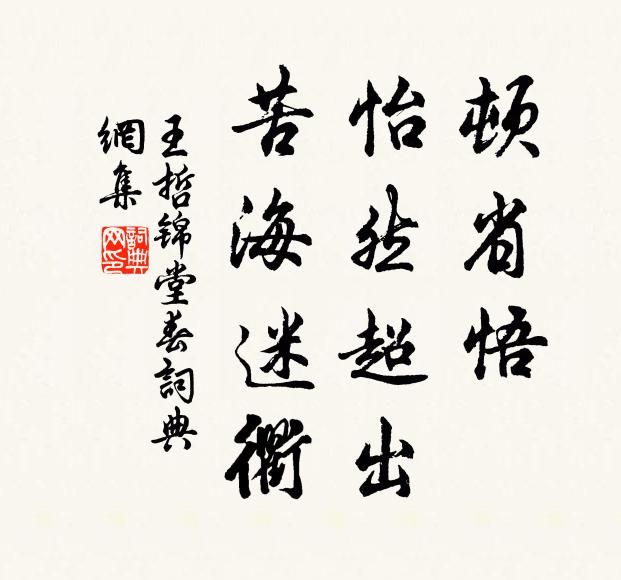 頓省悟
怡然超出
苦海迷衢
王哲锦堂春詞典
網集
詞典
网印